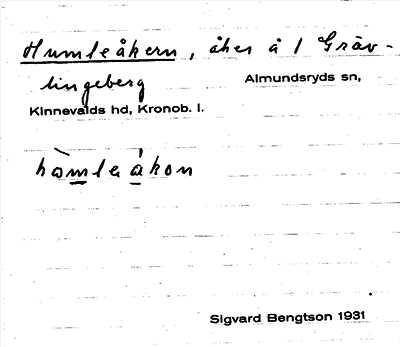 Humleåkern, åker å 1 Gräv-
lingeberg Almundsryds sn,
Kinnevalds hd, Kronob. l.
hòmleákon
Sigvard Bengtson 1931